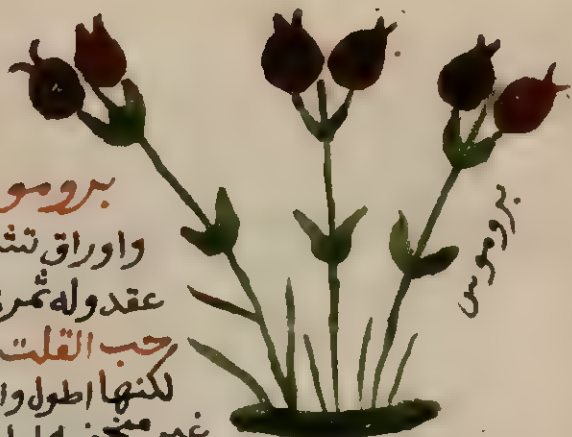 برومو
واوراق تشـ
عقد وله ثمر
حب القلت
لكنها اطول وا
بروموس